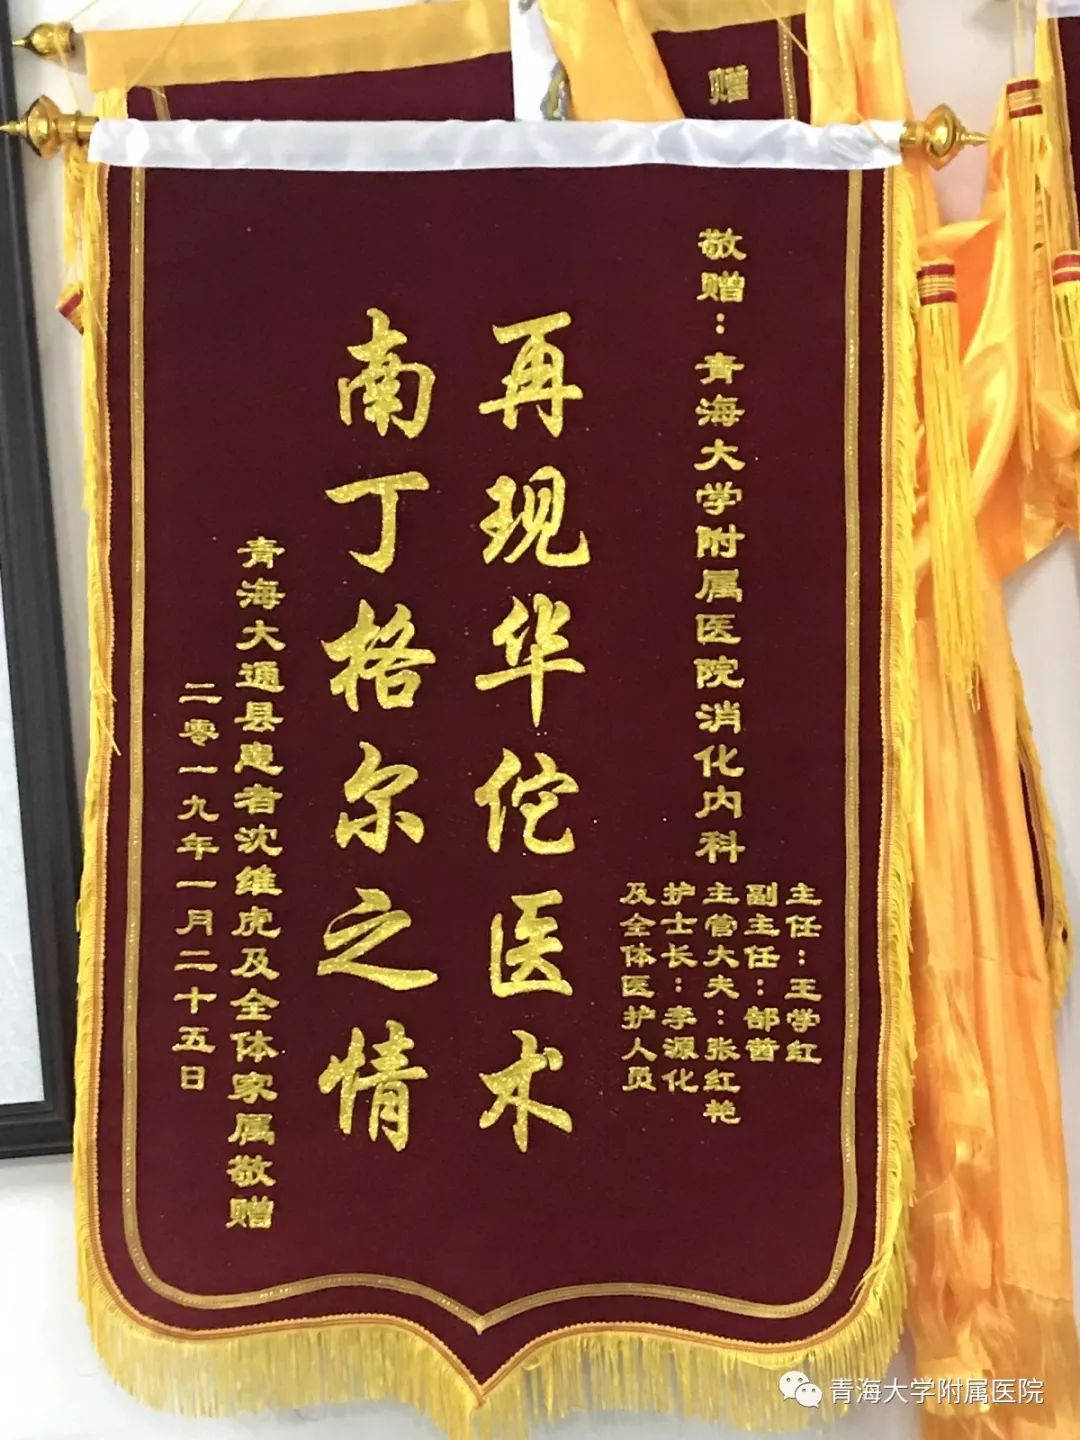 赠
敬赠：青海大学附属医院消化内科
主任：王学红
副主任：郜茜
主管大夫：张红艳
护士长：李源化
及全体医护人员
再现华佗医术
南丁格尔之情
青海大通县患者沈维虎及全体家属敬赠
二零一九年一月二十五日
青海大学附属医院